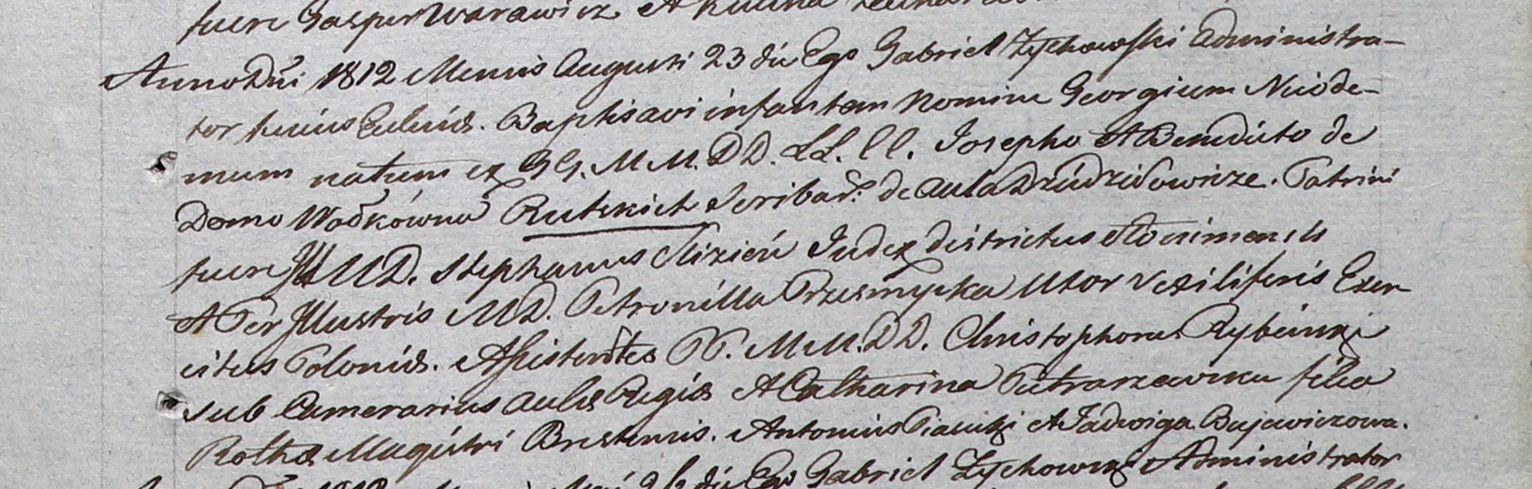 fuere Gasper Warawicz et
Anno Dni 1812 Mensis Augusti 23 die Ego Gabriel Zychowski Administra-
tor huius Eccłiæ. Baptisavi infantem Nomine Georgium Nicode-
mum natum ex GG. M M. D D. LL. ll. Josepho et Benedicto de
Domo Wołkówna Rutskich Scriba de aula Dziedziłowicze. Patrini
fuere Ill MD. Stephanus Slizień Judex districtus Słonimensis
et Per Illustris MD. Petronilla Przesmycka Uxor Vexiliferis Exer-
citus Poloniæ. Assistentes PP. M M. D D. Christophorus Rybinski
sub Camerarius aulæ Regiæ et Catharina Pietraszewska filia
Rothæ Magistri Brestensis. Antonius Piasecki et Jadwiga Bujewiczowa.
die Ego Gabriel Zychowski Administrator